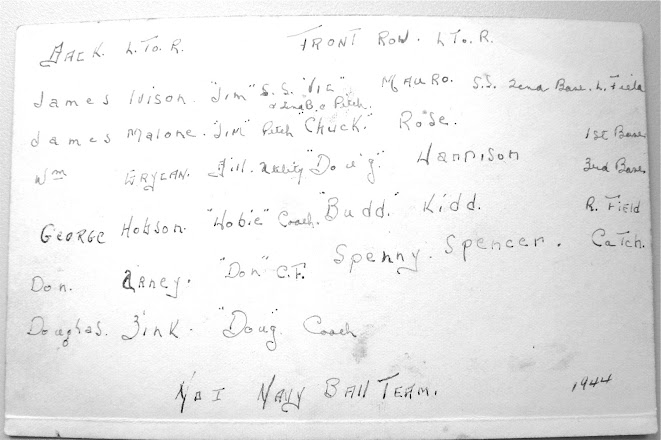 BACK. L.To.R. FRONT ROW. L.To.R.
James Ivison. "Jim" S.S. "Vic" MAURO. S.S. 2end Base. L. Field
& 2end B. & Pitch.
James Malone. "Jim" Pitch "Chuck." Rose. 1st Base
Wm Bill. Utility "Doug" Harrison 3rd Base
GEORGE Hobson. "Hobie" Coach. "Budd." Kidd. R. Field
Don. "Don" C.F. Spenny. Spencer. Catch.
Douglas. Zink. "Doug". Coach
No I Navy Ball Team. 1944